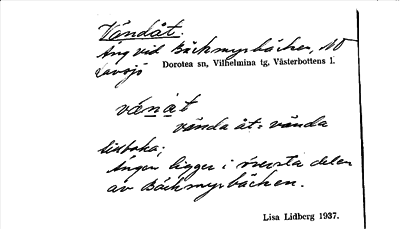 Vändåt.
Äng vid Bäckmyrbäcken, NO
Dorotea sn, Vilhelmina tg, Västerbottens l.
vänat
vända åt: vända
tillbaka;
Ängen ligger i översta delen
av Bäckmyrbäcken.
Lisa Lidberg 1937.